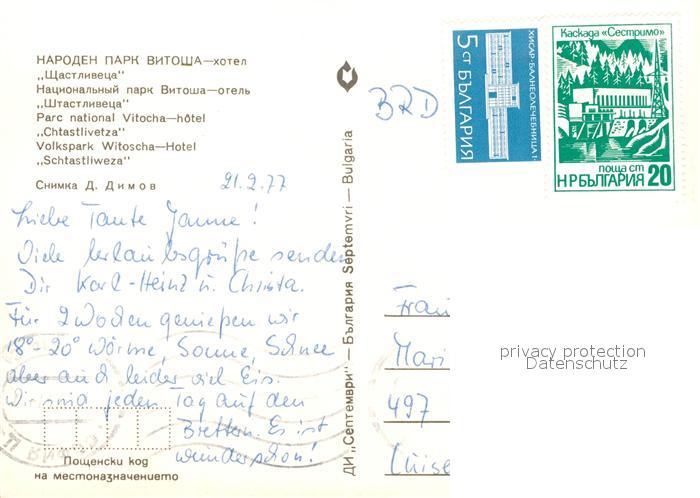 НАРОДЕН ПАРК ВИТОША—хотел
„Щастливеца"
Национальный парк Витоша—отель
„Штастливеца"
Parc national Vitocha—hôtel
„Chtastlivetza"
Volkspark Witoscha—Hotel
„Schtastliweza"
Снимка Д. Димов
21.2.77
Liebe Tante Janne!
Viele Urlaubsgrüße senden
Dir Karl-Heinz u. Christa.
Für 2 Wochen genießen wir
18°-20° Wärme, Sonne, Schnee
aber auch leider viel Eis.
Wir sind jeden Tag auf den
Brettern. Es ist
wunderschön!
Пощенски код
на местоназначението
ДИ „Септември" — България Septemvri — Bulgaria
BRD
5 СТ БЪЛГАРИЯ
ХИСАР·БАЛНЕОЛЕЧЕБНИЦАТА
Каскада «Сестримо»
поща ст
НРБЪЛГАРИЯ 20
Frau
Mari
497
privacy protection
Datenschutz